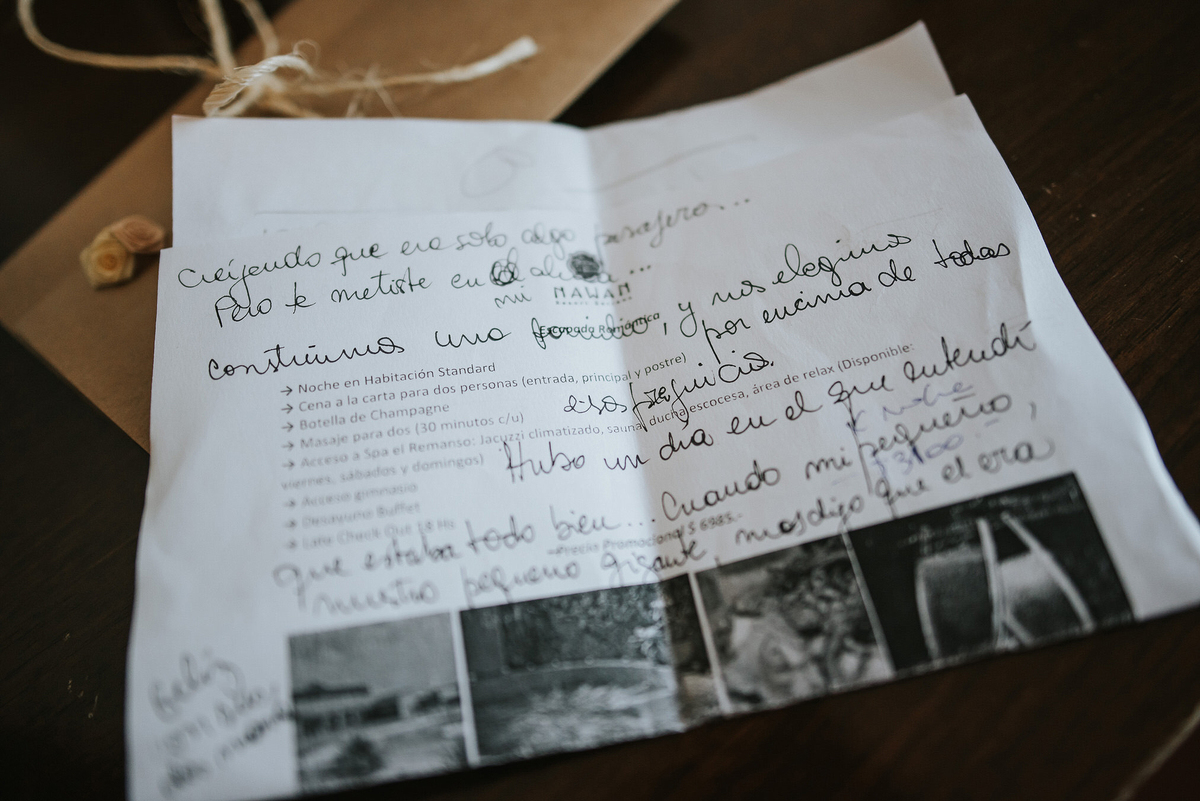 creyendo que era solo algo pasajero...
Pero te metiste en mi alma....
MAWAN
construimos una familia, y nos elegimos
Escapada Romántica
por encima de todas
→ Noche en Habitación Standard
→ Cena a la carta para dos personas (entrada, principal y postre)
→ Botella de Champagne
esos prejuicios.
→ Masaje para dos (30 minutos c/u)
→ Acceso a Spa el Remanso: Jacuzzi climatizado, sauna, ducha escocesa, área de relax (Disponible:
viernes, sábados y domingos)
Hubo un día en el que entendí
x noche
$3100.-
→ Acceso gimnasio
→ Desayuno Buffet
→ Late Check Out 18 Hs
que estaba todo bien... Cuando mi pequeño,
Precio Promocional $ 6985.-
nuestro pequeño gigante, nos dijo que el era